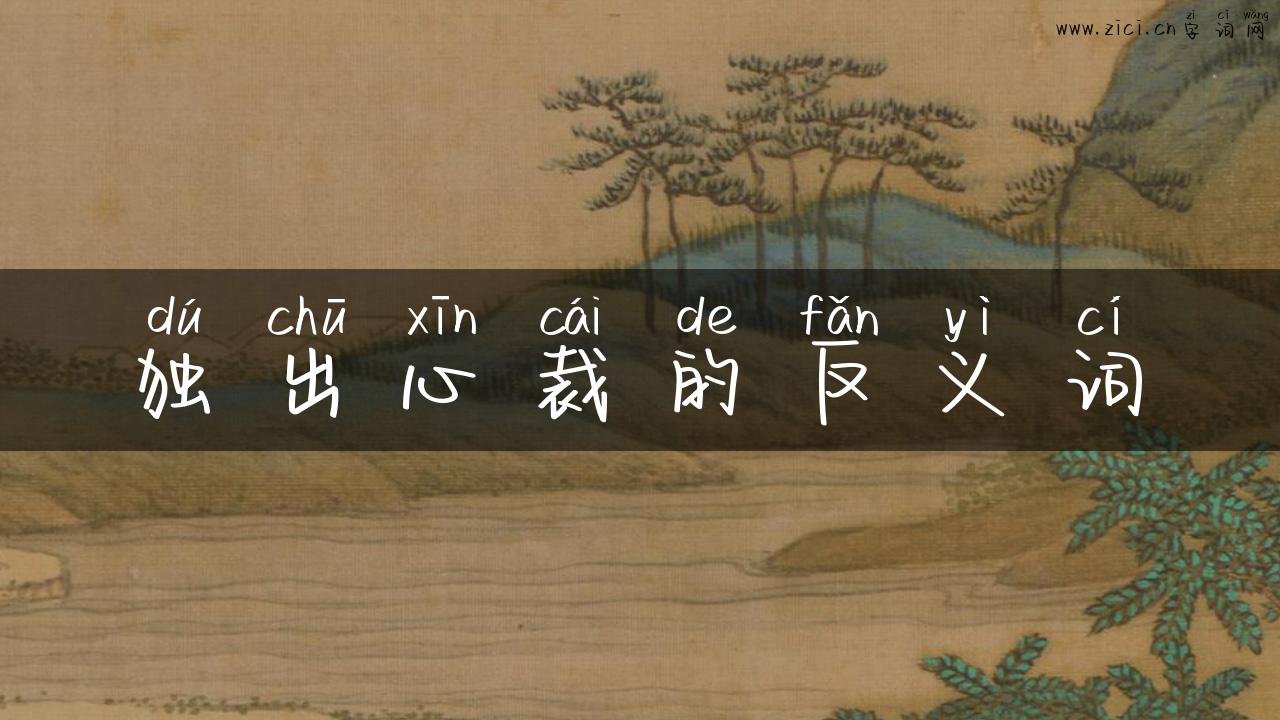 zì cí wǎng
www.zici.cn字词网
dú chū xīn cái de fǎn yì cí
独出心裁的反义词